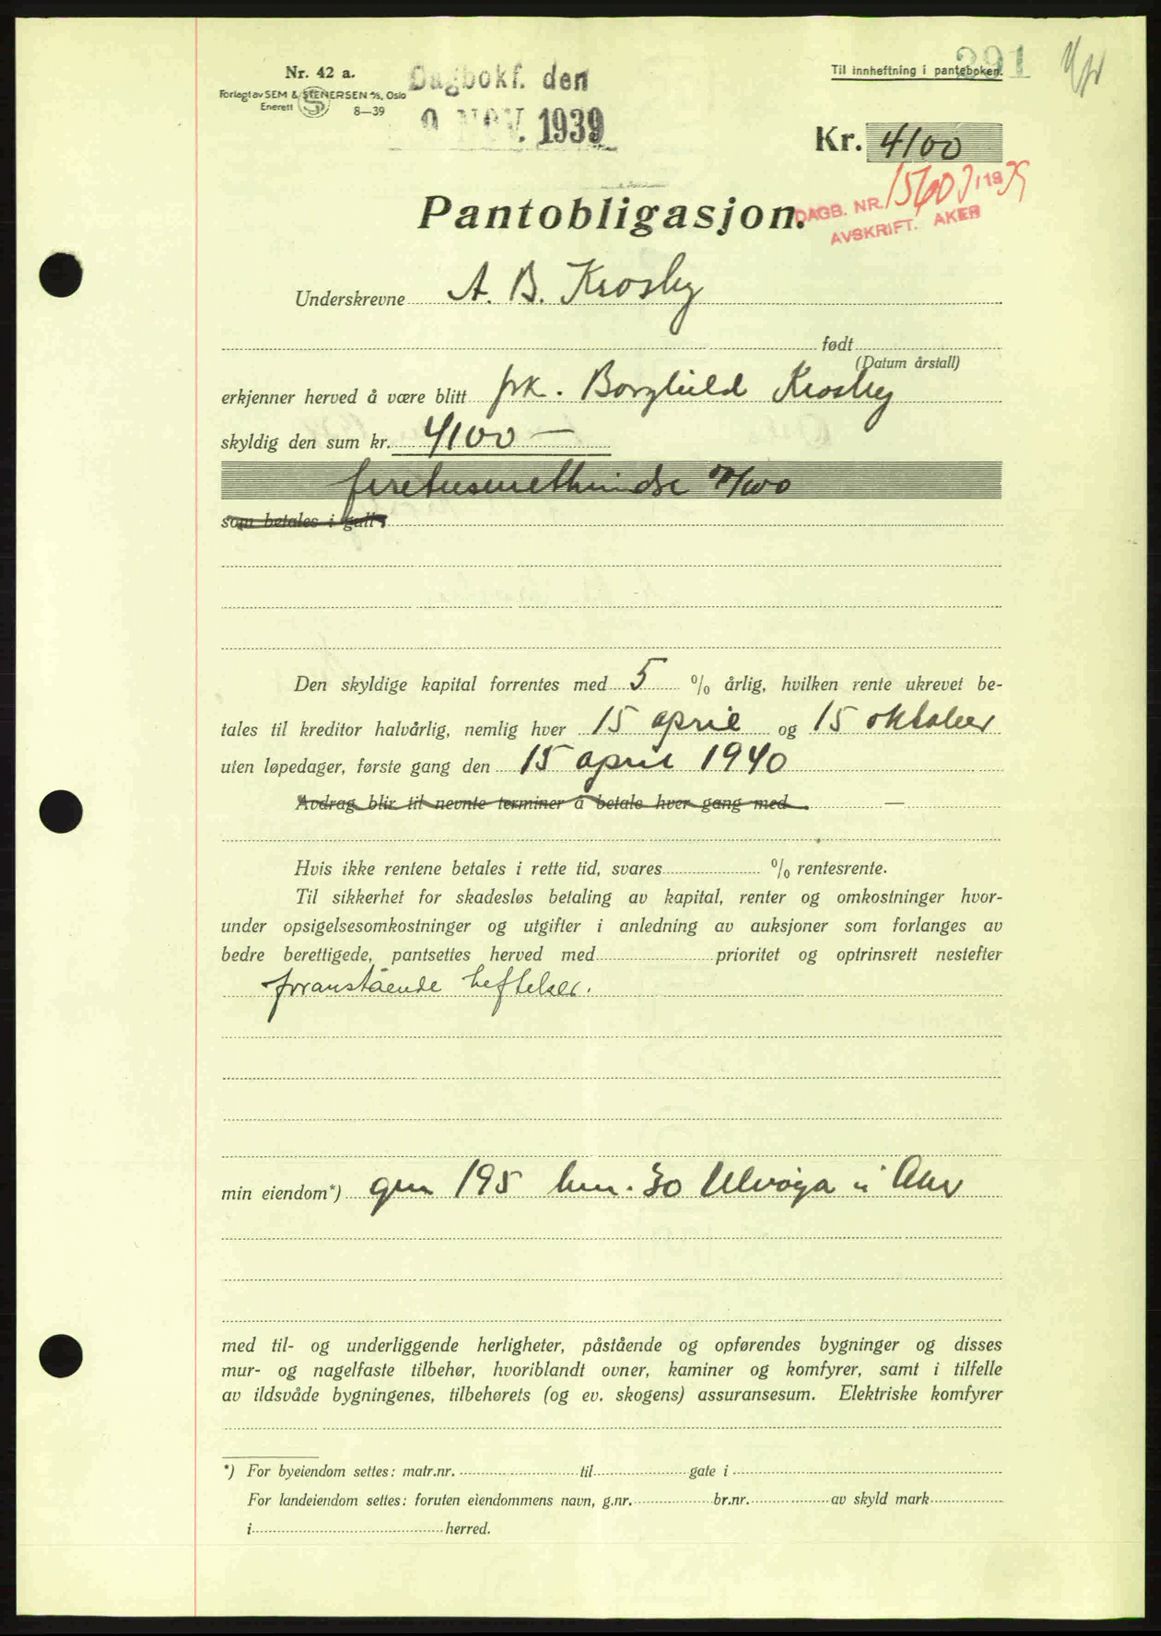 291
Nr. 42 a.
Forlagt av SEM & STENERSEN A/S, Oslo
Enerett 8—39
Dagbokf. den
9 NOV. 1939
Til innheftning i panteboken.
Kr. 4100
DAGB. NR. 1939
AVSKRIFT. AKER
Pantobligasjon.
Underskrevne A. B. Krosby
født
(Datum årstall)
erkjenner herved å være blitt frk. Borghild Krosby
skyldig den sum kr. 4100 —
firetusenethundre /100
som betales i gull
Den skyldige kapital forrentes med 5 % årlig, hvilken rente ukrevet be-
tales til kreditor halvårlig, nemlig hver 15 april og 15 oktober
uten løpedager, første gang den 15 april 1940
Avdrag blir til nevnte terminer å betale hver gang med —
Hvis ikke rentene betales i rette tid, svares % rentesrente.
Til sikkerhet for skadesløs betaling av kapital, renter og omkostninger hvor-
under opsigelsesomkostninger og utgifter i anledning av auksjoner som forlanges av
bedre berettigede, pantsettes herved med prioritet og optrinsrett nestefter
foranstående heftelser.
min eiendom*) gnr 195 bnr. 30 Ulvøya i Aker
med til- og underliggende herligheter, påstående og opførendes bygninger og disses
mur- og nagelfaste tilbehør, hvoriblandt ovner, kaminer og komfyrer, samt i tilfelle
av ildsvåde bygningenes, tilbehørets (og ev. skogens) assuransesum. Elektriske komfyrer
*) For byeiendom settes: matr.nr. til gate i
For landeiendom settes: foruten eiendommens navn, g.nr. br.nr. av skyld mark
i herred.